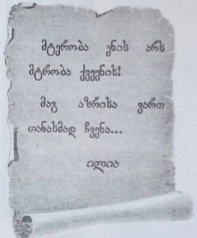 მტერობა ენის არს
მტრობა ქვეყნის!
მაგ აზრისა ვართ
თანახმად ჩვენა...
ილია